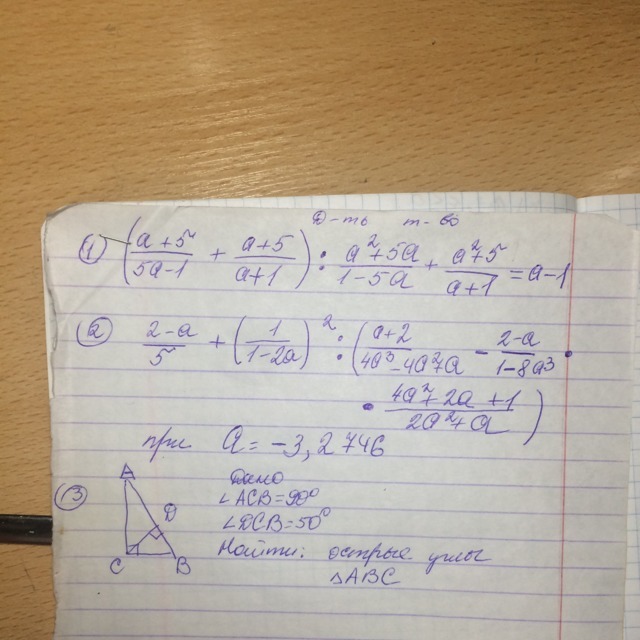 Д-ть т-во
① (a+5/5a-1 + a+5/a+1) : a²+5a/1-5a + a²+5/a+1 = a-1
② 2-a/5 + (1/1-2a)² : (a+2/4a³-4a²+a - 2-a/1-8a³ ·
· 4a²+2a+1/2a²+a)
при a = -3,2746
③ A
Дано
∠ACB=90°
D
∠DCB=50°
Найти: острые углы
C B
△ABC